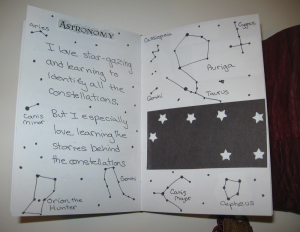 Aries
ASTRONOMY
I love star-gazing
and learning to
identify all the
constellations.
Canis
minor
But I especially
love learning the
stories behind
the constellations
Orion the
Hunter
Gemini
Cassiopeia
Cygnus
Auriga
Gemini
Taurus
Canis
Major
Cepheus